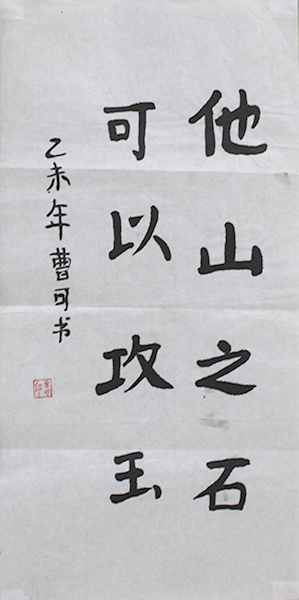 他山之石
可以攻玉
乙未年曹可书